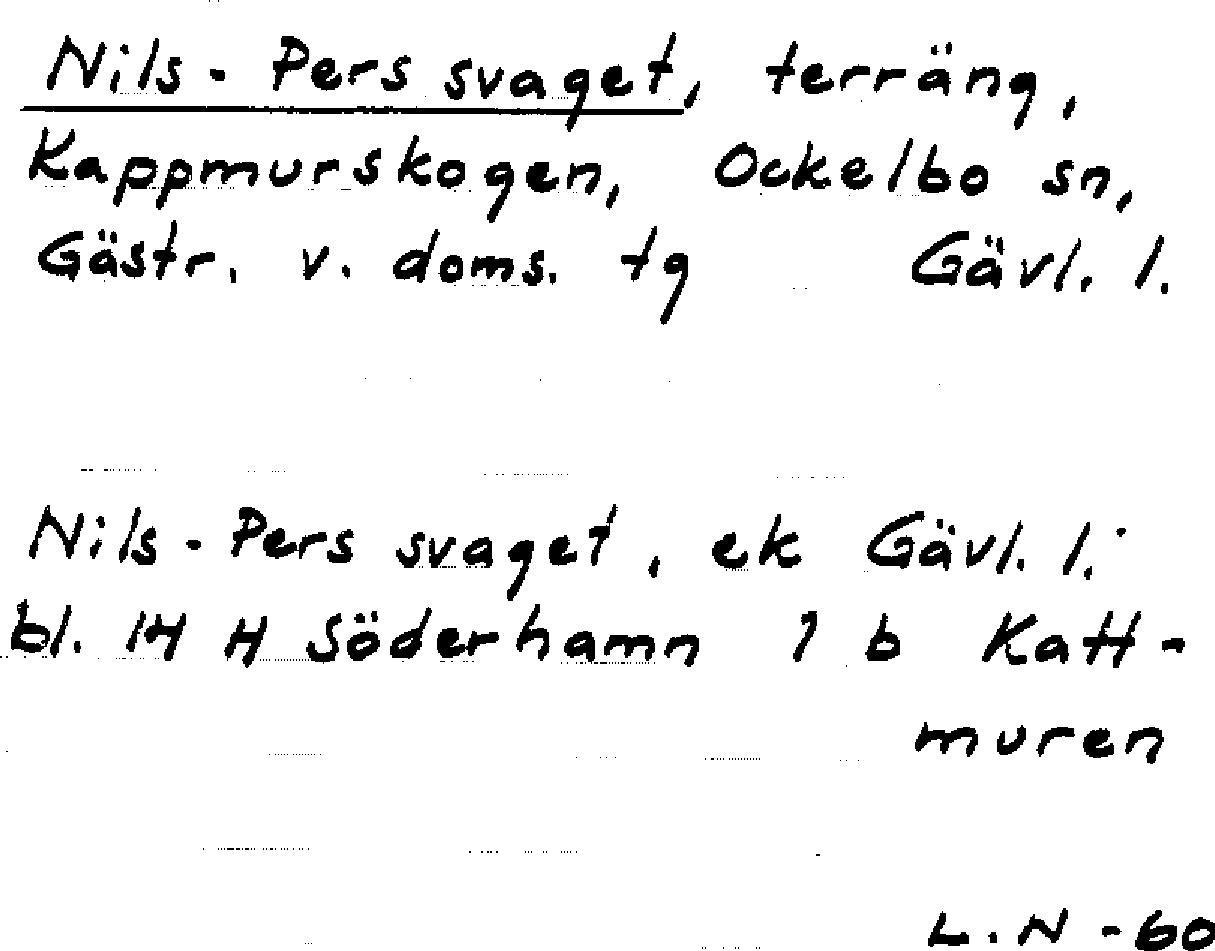 Nils-Pers svaget, terräng,
Kappmurskogen, Ockelbo sn,
Gästr. v. doms. tg Gävl. l.
Nils-Pers svaget, ek Gävl. l.:
bl. 14 H Söderhamn 1 b Katt-
muren
L.N -60